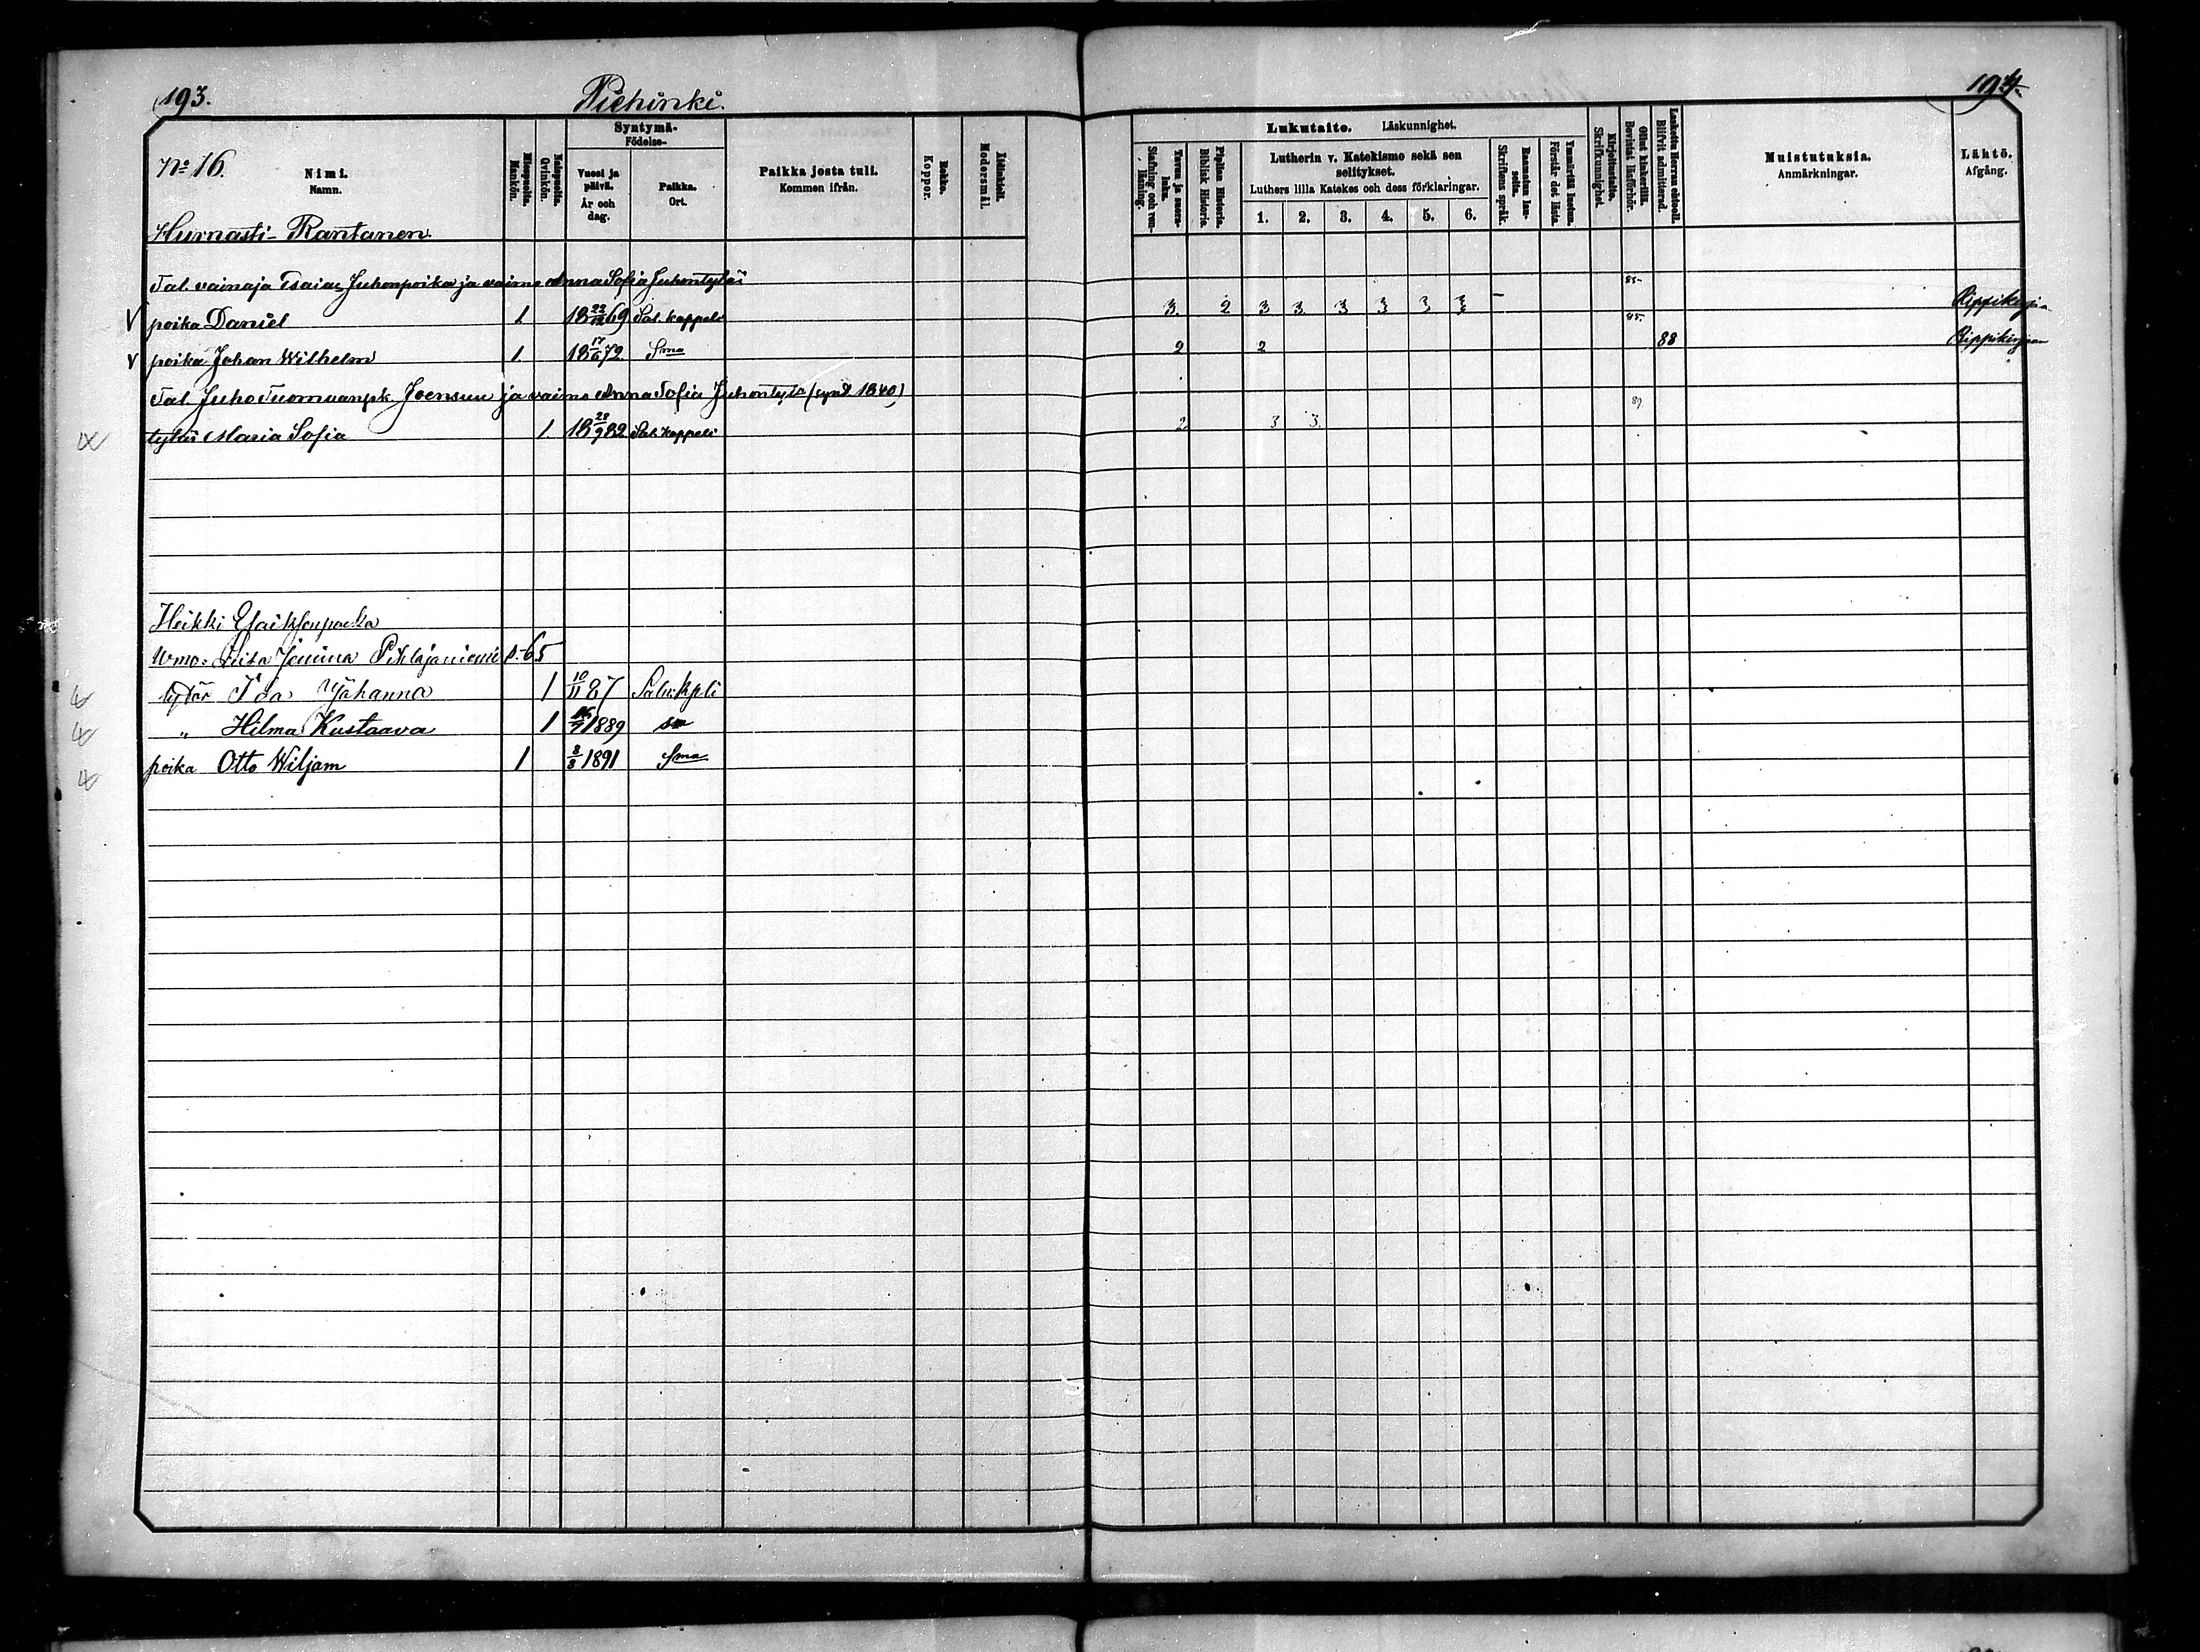 193.
Piehinki.
194.
No 16.
Nimi.
Namn.
Miespuolia.
Mankön.
Naispuolia.
Qvinkön.
Syntymä-
Födelse-
Vuosi ja päivä.
År och dag.
Paikka.
Ort.
Paikka josta tuli.
Kommen ifrån.
Rokko.
Koppor.
Äidinkieli.
Modersmål.
Lukutaito. Läskunnighet.
Tavuu ja suora-luku.
Stafning och ren-läsning.
Piplian Historia.
Biblisk Historia.
Lutherin v. Katekismo sekä sen selitykset.
Luthers lilla Katekes och dess förklaringar.
1. 2. 3. 4. 5. 6.
Raamatun lau-seita.
Skriftens språk.
Ymmärtää luetun.
Förstår det lästa.
Kirjoitustaito.
Skrifkunnighet.
Ollut kinkerillä.
Bevistat läsförhör.
Laskettu Herran ehtooll.
Blifvit admitterad.
Muistutuksia.
Anmärkningar.
Lähtö.
Afgång.
Hurnasti-Rantanen.
Tal. vainaja Isaiac Juhonpoika ja vaimo Anna Sofia Juhontytär
V poika Daniel 1 18 22/12 69 Sal. kappeli 3. 2 3 3. 3 3 3 3 – 85. Rippikirja-
V poika Johan Wilhelm 1. 18 17/6 72 Sma 2 2 85. 88 Rippikirjaan
Tal. Juho Tuomaanpk. Joensuu ja vaimo Anna Sofia Juhontytä (synt 1840)
tytär Maria Sofia 1. 18 28/9 82 Sal. kappeli 2 3 3. 89
Heikki
Wmo: Liisa Pihlajaniemi s.-65
tytär Ida Johanna 1 10/11 87 Salo. kpli
" Hilma Kustaava 1 1889 sm
poika Otto Wiljam 1 3/3 1891 Sma